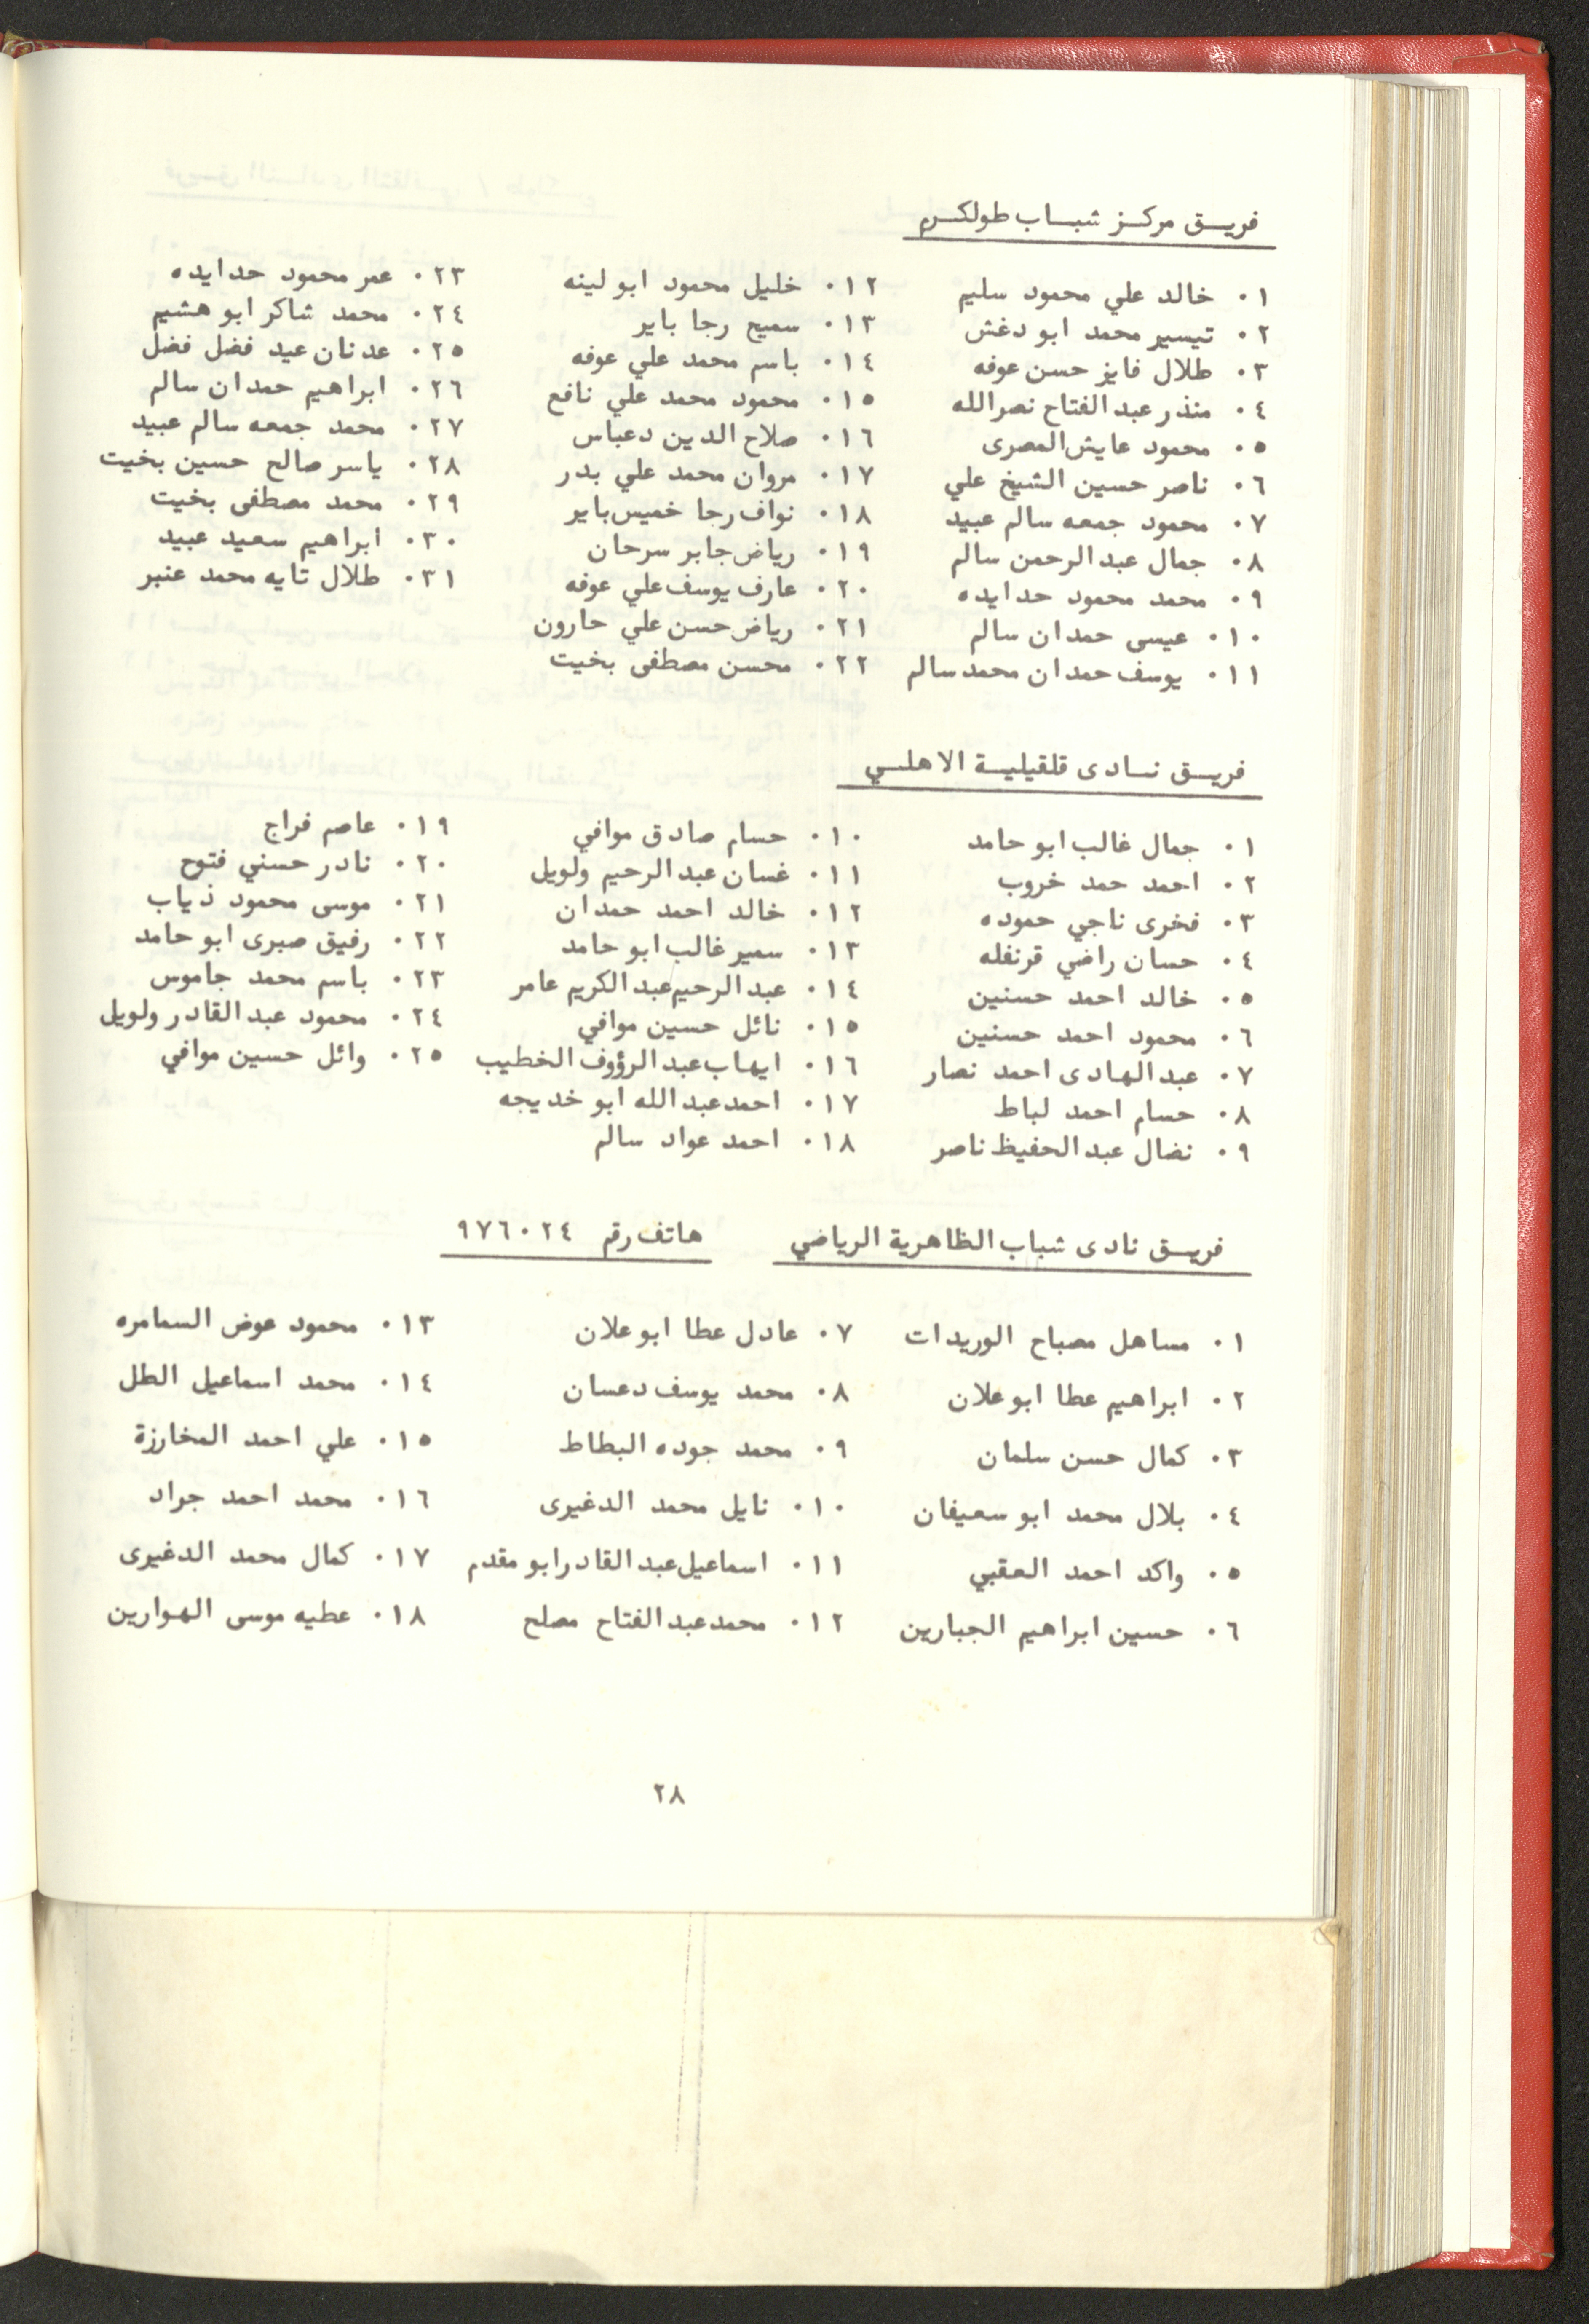 فريق مركز شباب طولكرم
١٠ خالد علي محمود سليم
٢٠ تيسير محمد ابو دغش
٣٠ طلال فايز حسن عوفه
٤٠ منذر عبد الفتاح نصرالله
٥٠ محمود عايش المصرى
٦٠ ناصر حسين الشيخ علي
٧٠ محمود جمعه سالم عبيد
٨٠ جمال عبد الرحمن سالم
٩٠ محمد محمود حدايده
١٠٠ عيسى حمدان سالم
١١٠ يوسف حمدان محمد سالم
١٢٠ خليل محمود ابو لينه
١٣٠ سميح رجا باير
١٤٠ باسم محمد علي عوفه
١٥٠ محمود محمد علي نافع
١٦٠ صلاح الدين دعباس
١٧٠ مروان محمد علي بدر
١٨٠ نواف رجا خميس باير
١٩٠ رياض جابر سرحان
٢٠٠ عارف يوسف علي عوفه
٢١٠ رياض حسن علي حارون
٢٢٠ محسن مصطفى بخيت
٢٣٠ عمر محمود حدايده
٢٤٠ محمد شاكر ابو هشيم
٢٥٠ عدنان عيد فضل فضل
٢٦٠ ابراهيم حمدان سالم
٢٧٠ محمد جمعه سالم عبيد
٢٨٠ ياسر صالح حسين بخيت
٢٩٠ محمد مصطفى بخيت
٣٠٠ ابراهيم سعيد عبيد
٣١٠ طلال تايه محمد عنبر
فريق نادى قلقيلية الاهلي
١٠ جمال غالب ابو حامد
٢٠ احمد حمد خروب
٣٠ فخرى ناجي حموده
٤٠ حسان راضي قرنفله
٥٠ خالد احمد حسنين
٦٠ محمود احمد حسنين
٧٠ عبد الهادى احمد نصار
٨٠ حسام احمد لباط
٩٠ نضال عبد الحفيظ ناصر
١٠٠ حسام صادق موافي
١١٠ غسان عبد الرحيم ولويل
١٢٠ خالد احمد حمدان
١٣٠ سمير غالب ابو حامد
١٤٠ عبد الرحيم عبد الكريم عامر
١٥٠ نائل حسين موافي
١٦٠ ايهاب عبد الرؤوف الخطيب
١٧٠ احمد عبد الله ابو خديجه
١٨٠ احمد عواد سالم
١٩٠ عاصم فراج
٢٠٠ نادر حسني فتوح
٢١٠ موسى محمود ذياب
٢٢٠ رفيق صبرى ابو حامد
٢٣٠ باسم محمد جاموس
٢٤٠ محمود عبد القادر ولويل
٢٥٠ وائل حسين موافي
فريق نادى شباب الظاهرية الرياضي هاتف رقم ٩٧٦٠٢٤
١٠ مساهل مصباح الوريدات
٢٠ ابراهيم عطا ابو علان
٣٠ كمال حسن سلمان
٤٠ بلال محمد ابو سعيفان
٥٠ واكد احمد العقبي
٦٠ حسين ابراهيم الجبارين
٧٠ عادل عطا ابو علان
٨٠ محمد يوسف دعسان
٩٠ محمد جوده البطاط
١٠٠ نايل محمد الدغيرى
١١٠ اسماعيل عبد القادر ابو مقدم
١٢٠ محمد عبد الفتاح مصلح
١٣٠ محمود عوض السمامره
١٤٠ محمد اسماعيل الطل
١٥٠ علي احمد المخارزة
١٦٠ محمد احمد جراد
١٧٠ كمال محمد الدغيرى
١٨٠ عطيه موسى الهوارين
٢٨